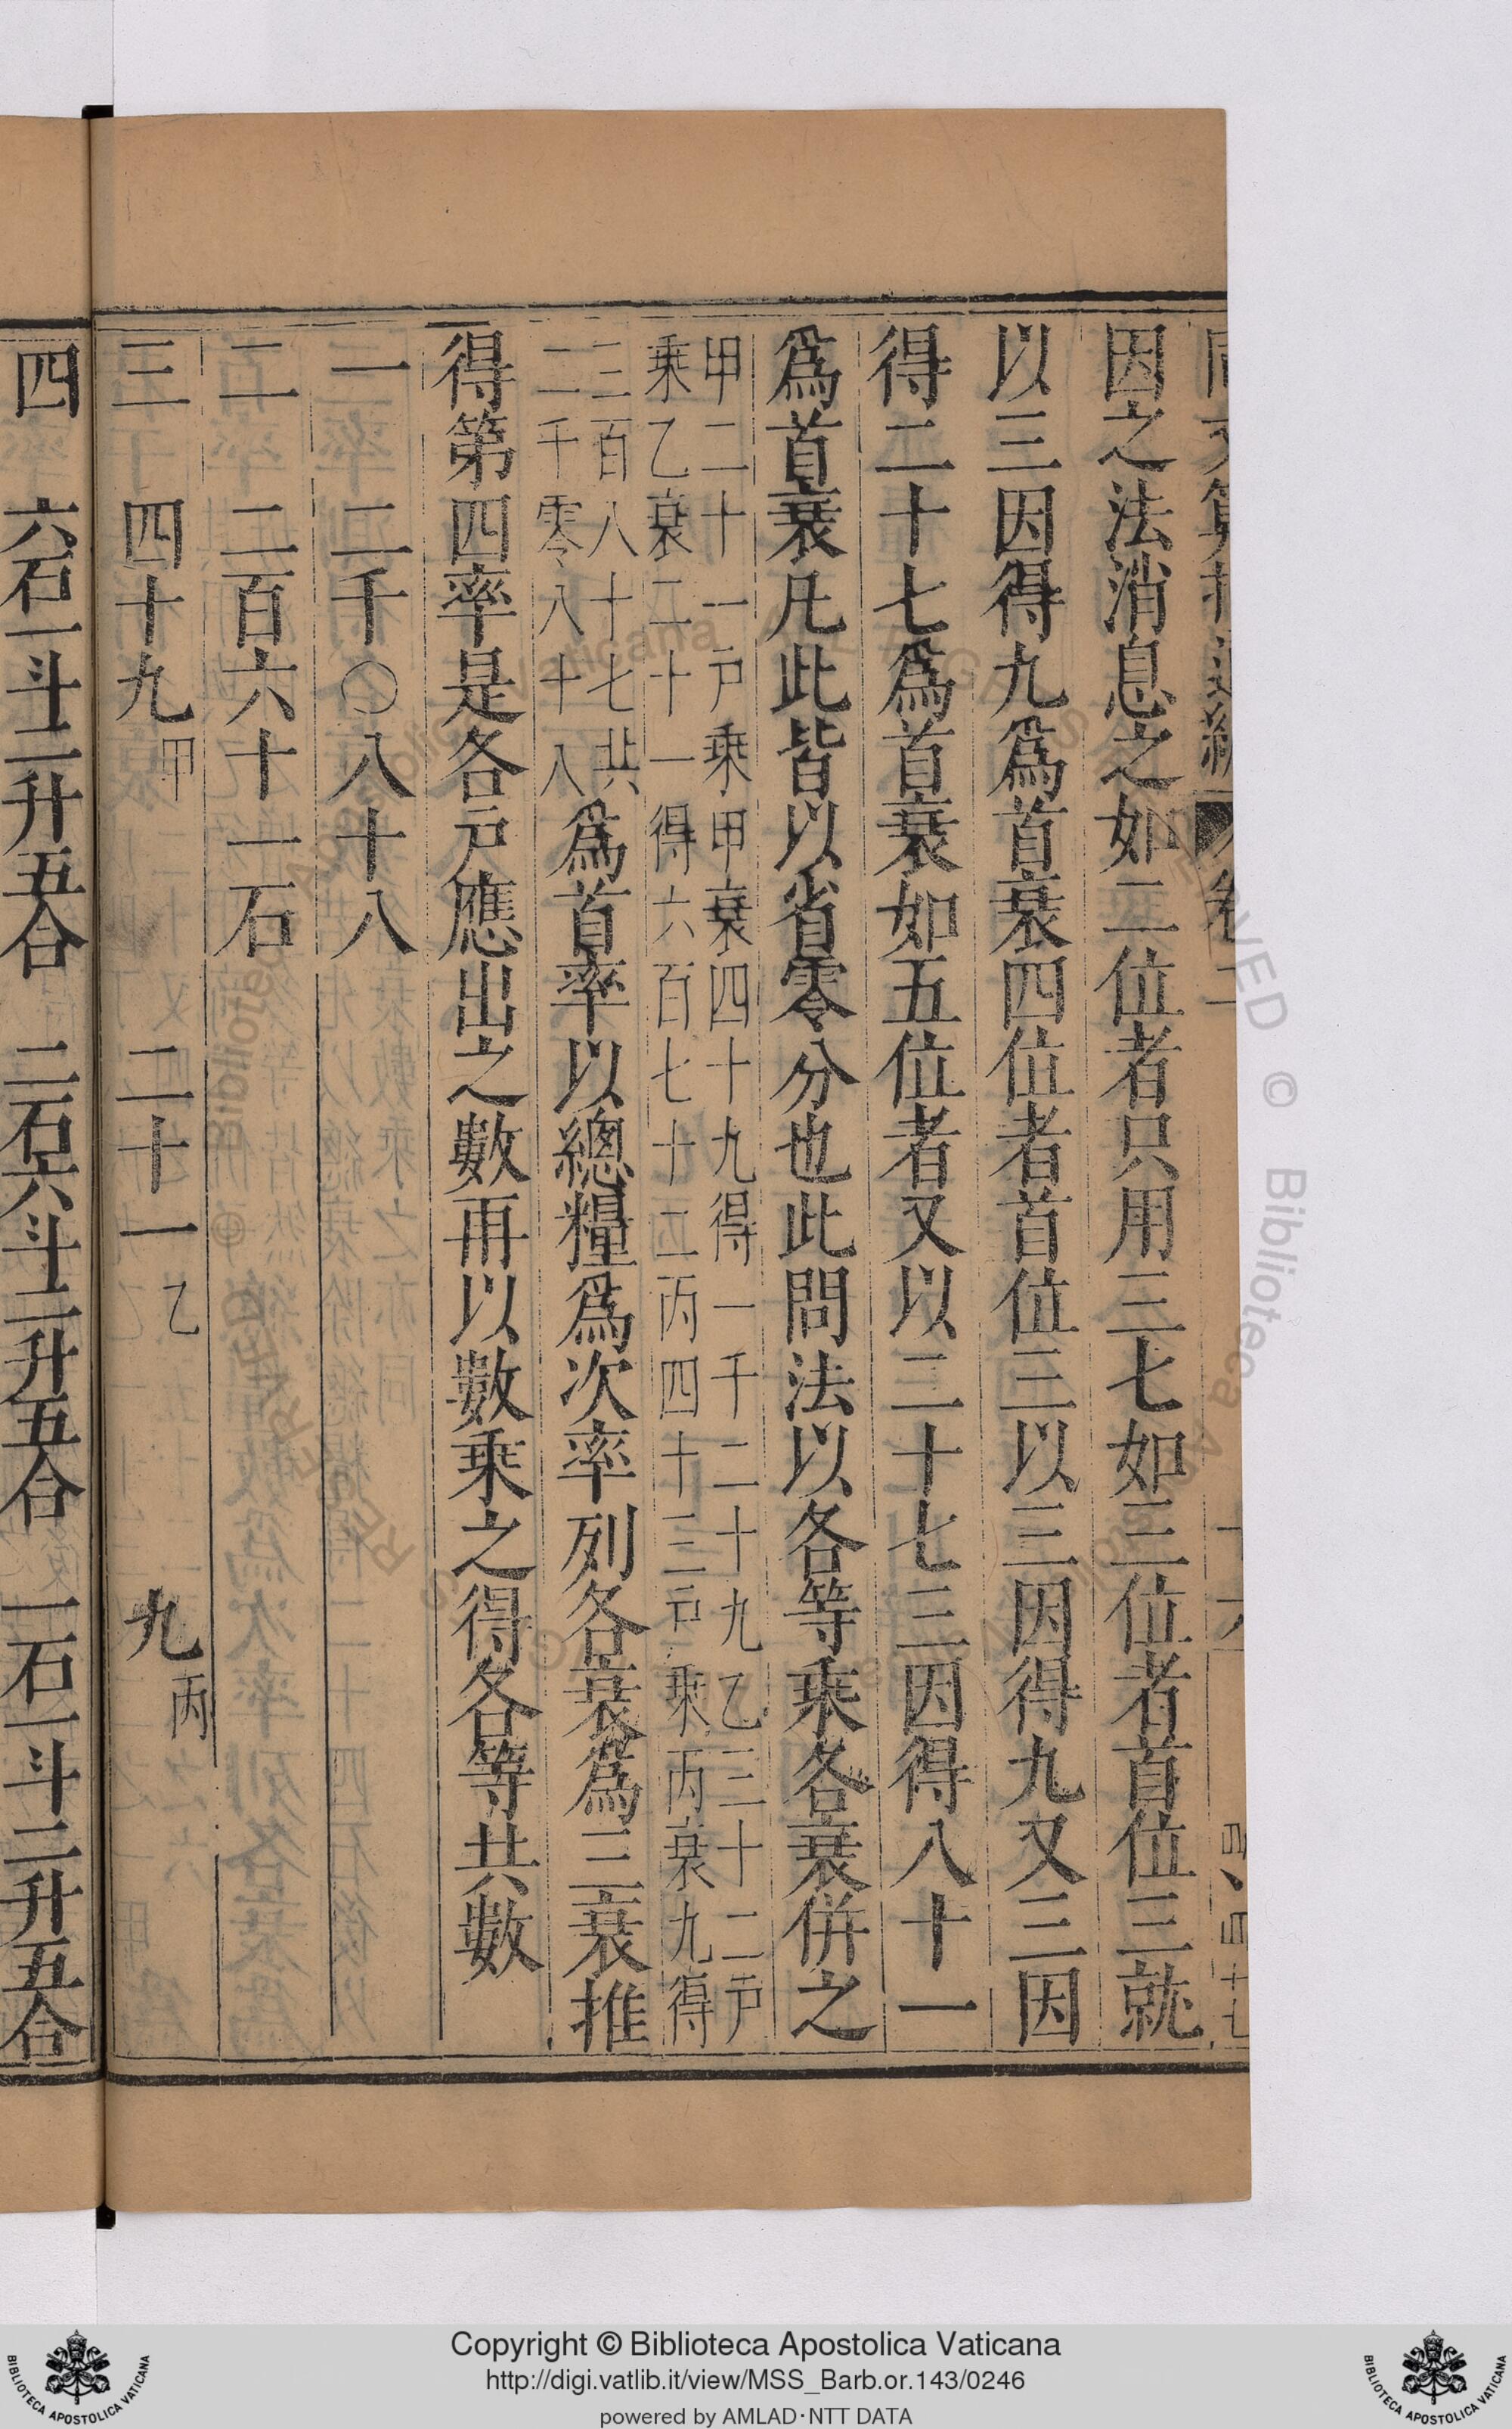 因之法消息之如二位者只用三七如三位者首位三就
以三因得九爲首衰四位者首位三以三因得九又三因
得二十七爲首衰如五位者又以二十七三因得八十一
爲首衰凡此皆以省零分也此問法以各等乘各衰併之
甲二十一戸乘甲衰四十九得一千二十九乙三十二戸
乘乙衰二十一得六百七十二丙四十三戸乘丙衰九得
三百八十七共
二千零八十八
爲首率以總糧爲次率列各衰爲三衰推
得第四率是各戸應出之數再以數乘之得各等共數
一 二千〇八十八
二 二百六十一石
三 四十九甲 二十一乙 九丙
四 六石一斗二升五合 二石六斗二升五合 一石一斗二升五合
Copyright © Biblioteca Apostolica Vaticana
http://digi.vatlib.it/view/MSS_Barb.or.143/0246
powered by AMLAD·NTT DATA
BIBLIOTECA APOSTOLICA VATICANA
BIBLIOTECA APOSTOLICA VATICANA